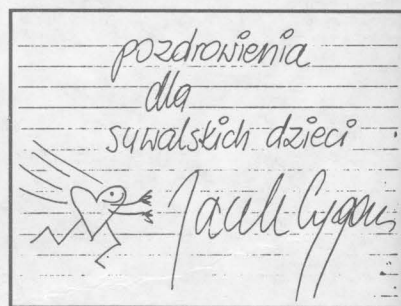 pozdrowienia
dla
suwalskich dzieci
Jacek Cygan